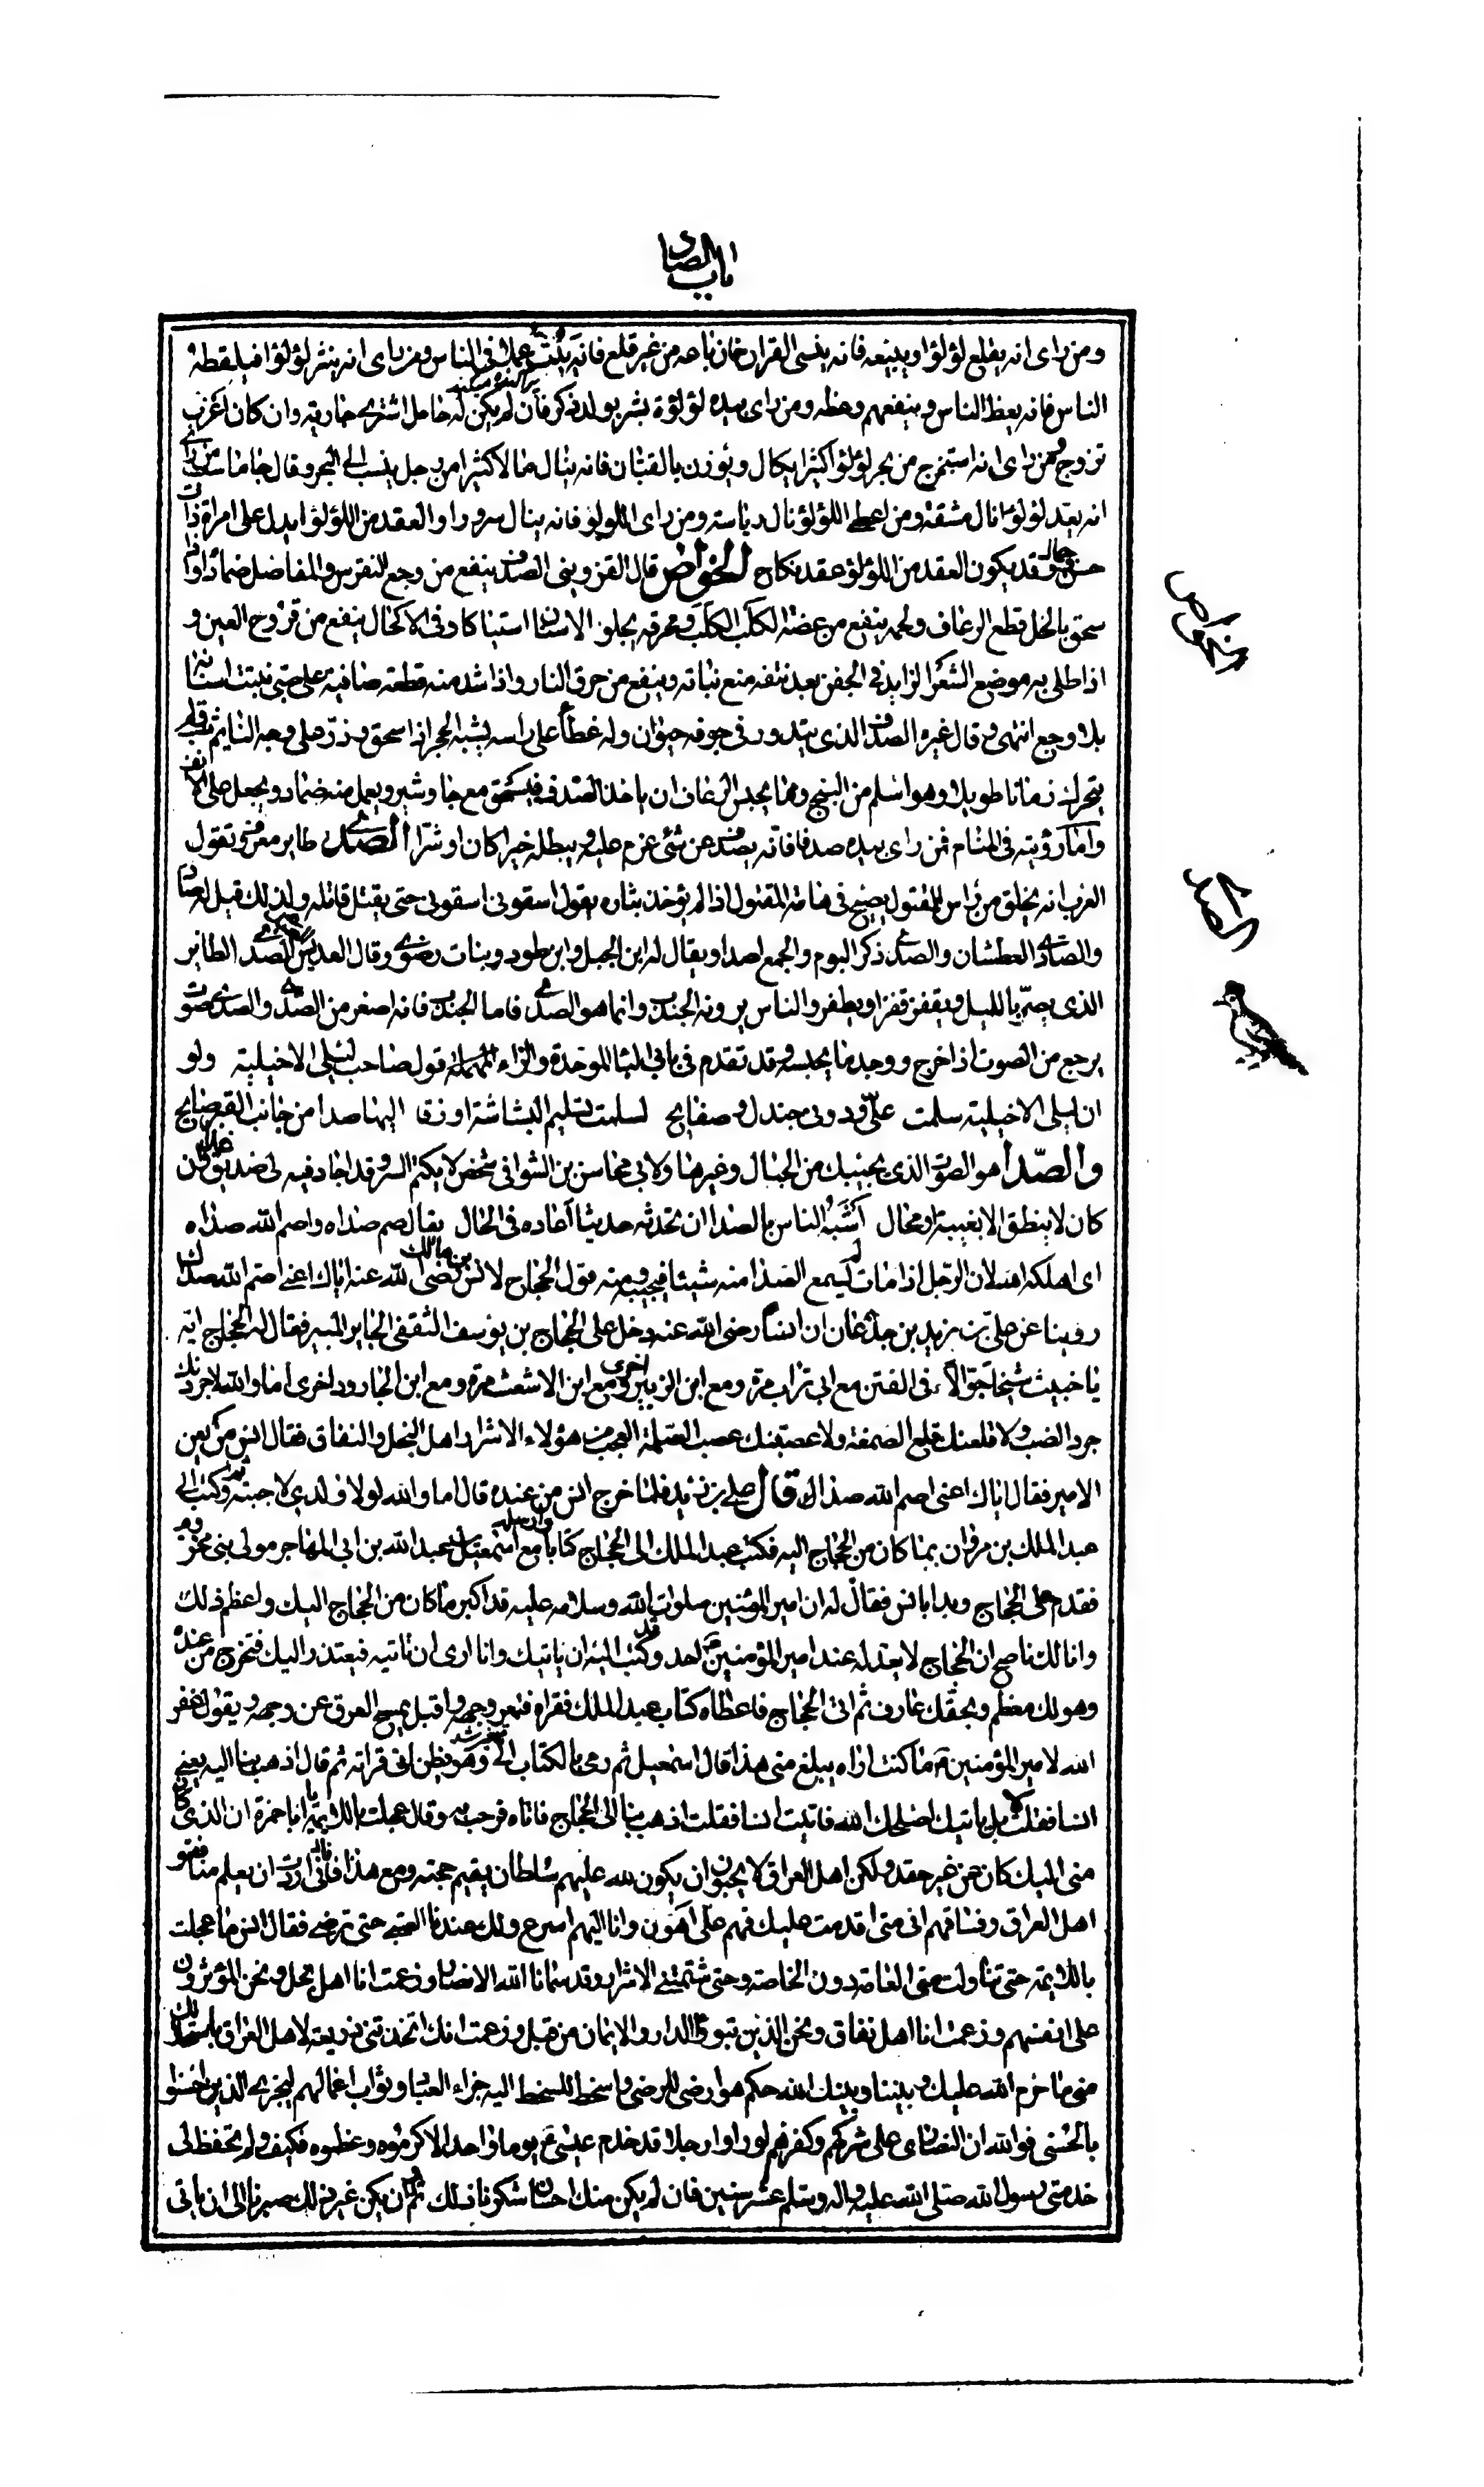 باب الصاد
ومن راى انه يقلع لؤلؤا ويبيعه فانه ينسى القران فان باعه من غير قلع فانه يبث علما فى الناس ومن راى انه ينثر لؤلؤا فيلقطه
الناس فانه يعظ الناس وينفعهم وعظه ومن راى بيده لؤلؤة بشر بولد ذكر فان لم يكن له حامل اشترى جارية وان كان اعزب
تزوج ومن راى انه استخرج من بحر لؤلؤا كثيرا يكال ويوزن بالقبان فانه ينال مالا كثيرا من رجل ينسب الى البحر وقال جاماسب من راى
انه يعد لؤلؤا نال مشقة ومن اعطى اللؤلؤ نال رياسة ومن راى اللؤلؤ فانه ينال سرورا والعقد من اللؤلؤ يدل على امراة ذات
حسن وجمال وقد يكون العقد من اللؤلؤ عقد نكاح الخواص قال القزوينى الصدف ينفع من وجع النقرس والمفاصل ضمادا واذا
سحق بالخل قطع الرعاف ولحمه ينفع من عضة الكلب الكلب ومحرقه يجلو الاسنان استياكا وفى الاكتحال ينفع من قروح العين و
اذا طلى به موضع الشعر الزايد فى الجفن بعد نتفه منع نباته وينفع من حرق النار واذا شد منه قطعة صافية على صبى نبتت اسنانه
بلا وجع انتهى وقال غيره الصدف الذى يتدور فى جوفه حيوان وله غطاء على راسه يشبه الحجر اذا سحق وذر على وجه النايم ثقل فلم
يتحرك زمانا طويلا وهو اسلم من البنج ومما يحبس الرعاف ان ياخذ الصدف فيسحق مع جاوشير ويعمل منه ضماد ويجعل على الانف
واما رؤيته فى المنام فمن راى بيده صدفا فانه يصدف عن شئ عزم عليه ويبطله خيرا كان او شرا الصدى طاير معروف تقول
العرب انه يخلق من راس المقتول يصيح فى هامة المقتول اذا لم يؤخذ بثاره يقول اسقونى اسقونى حتى يقتل قاتله ولذلك قيل له صاد
والصادى العطشان والصدى ذكر البوم والجمع اصدا ويقال له ابن الجبل وابن طود وبنات رضوى وقال العديس الصدى الطاير
الذى يصر بالليل ويقفز قفزا ويطفر والناس يرونه الجندب وانما هو الصدى فاما الجندب فانه اصغر من الصدى والصدى صوت
يرجع من الصوت اذا خرج ووجد ما يحبسه وقد تقدم فى باب الباء الموحدة والراء المهملة قول صاحب ليلى الاخيلية ولو
ان ليلى الاخيلية سلمت على ودونى جندل وصفايح لسلمت تسليم البشاشة او زقا اليها صدا من جانب القبر صايح
والصدا هو الصوت الذى يجيبك من الجبال وغيرها ولابى محاسن بن الشوا فى شخص لا يكتم السر وقد اجاد فيه لى صديق غدا وان
كان لا ينطق الا بغيبة او محال اشبه الناس بالصدا ان تحدثه حديثا اعاده فى الحال يقال صم صداه واصم الله صداه
اى اهلكه الله لان الرجل اذا مات لم يسمع الصدا منه شيئا فيجيبه ومنه قول الحجاج لانس بن مالك رضى الله عنه اياك اعنى اصم الله صداك
روينا عن على بن زيد بن جدعان ان انسا رضى الله عنه دخل على الحجاج بن يوسف الثقفى الجاير المبير فقال له الحجاج ايه
يا خبيث شيخا جوالا فى الفتن مع ابى تراب مرة ومع ابن الزبير اخرى ومع ابن الاشعث مرة ومع ابن الجارود اخرى اما والله لاجردنك
جرد الضب ولاقلعنك قلع الصمغة ولاعصبنك عصب السلمة العجب من هؤلاء الاشرار اهل البخل والنفاق فقال انس من يعنى
الامير فقال اياك اعنى اصم الله صداك قال على بن زيد فلما خرج انس من عنده قال اما والله لولا ولدى لاجبته ثم كتب الى
عبد الملك بن مروان بما كان من الحجاج اليه فكتب عبد الملك الى الحجاج كتابا وارسله مع اسمعيل بن عبد الله بن ابى المهاجر مولى بنى مخزوم
فقدم على الحجاج وبدا بانس فقال له ان امير المؤمنين صلوات الله وسلامه عليه قد اكبر ما كان من الحجاج اليك واعظم ذلك
وانا لك ناصح ان الحجاج لا يعدله عند امير المؤمنين احد وقد كتب اليه ان ياتيك وانا ارى ان تاتيه فيعتذر اليك فتخرج من عنده
وهو لك معظم وبحقك عارف ثم اتى الحجاج فاعطاه كتاب عبد الملك فقراه فتمعر وجهه واقبل يمسح العرق عن وجهه ويقول غفر
الله لامير المؤمنين ما كنت اراه يبلغ منى هذا قال اسمعيل ثم رمى بالكتاب الى وهو يظن انى قراته ثم قال اذهب بنا اليه يعنى
انسا فقلت لا بل ياتيك اصلحك الله فاتيت انسا فقلت اذهب بنا الى الحجاج فاتاه فرحب به وقال عجلت باللائمة يا ابا حمزة ان الذى كان
منى اليك كان من غير حقد ولكن اهل العراق لا يحبون ان يكون لله عليهم سلطان يقيم حجته ومع هذا فانى اردت ان يعلم منافقو
اهل العراق وفساقهم انى متى اقدمت عليك فهم على اهون وانا اليهم اسرع ولك عندنا العتبى حتى ترضى فقال انس ما عجلت
باللائمة حتى تناولت منى العامة دون الخاصة وحتى شتمتنى الاشرار وقد سمانا الله الانصار وزعمت انا اهل بخل ونحن المؤثرون
على انفسهم وزعمت انا اهل نفاق ونحن الذين تبوؤا الدار والايمان من قبل وزعمت انك اتخذتنى ذريعة لاهل العراق باستحلالك
منى ما حرم الله عليك وبيننا وبينك الله حكم هو ارضى للرضى واسخط للسخط اليه جزاء العباد وثواب اعمالهم ليجزى الذين احسنوا
بالحسنى فوالله ان النصارى على شركهم وكفرهم لو راوا رجلا قد خدم عيسى ع يوما واحدا لاكرموه وعظموه فكيف ولم تحفظ لى
خدمتى رسول الله صلى الله عليه واله وسلم عشر سنين فان لم يكن منك احسان شكرنا ذلك وان يكن غير ذلك صبرنا الى ان ياتى
الخواص
الصدى